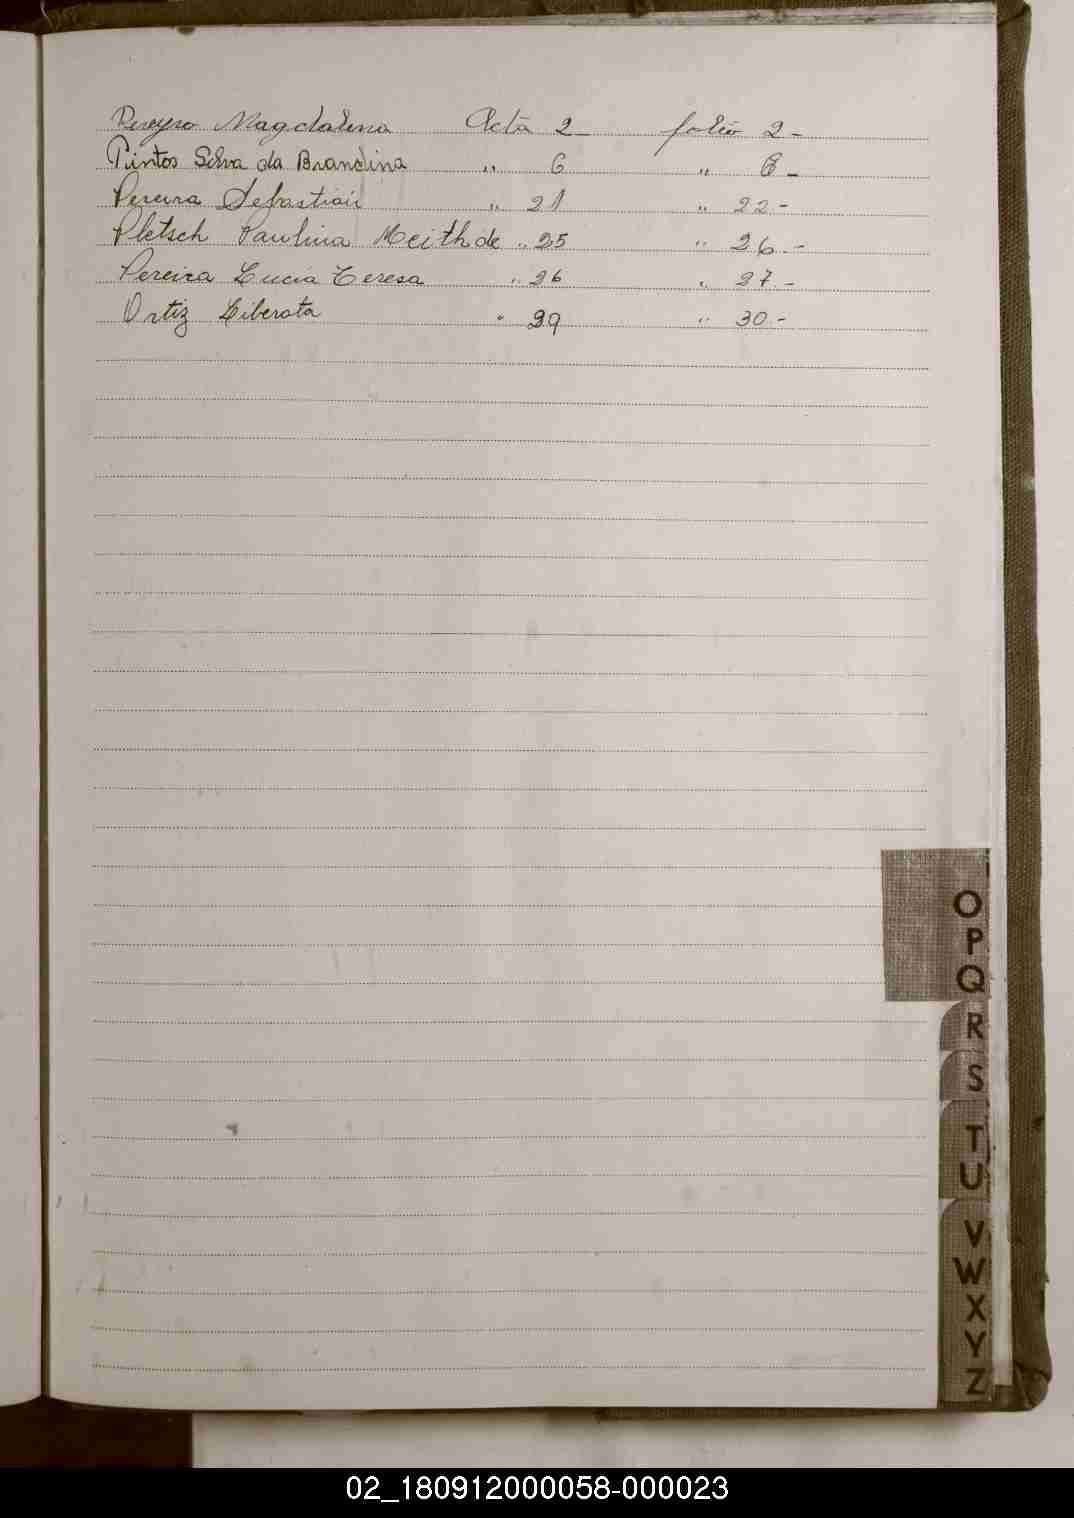 Pereyra Magdalena Acta 2 - folio 2 -
Pintos Silva da Brandina " 6 " 6 -
Pereira Sebastian " 21 " 22 -
Pletsch Paulina Meithde " 25 " 26 . -
Pereira Lucia Teresa " 26 " 27 . -
Ortiz Liberata " 29 " 30 . -
O
P
Q
R
S
T
U
V
W
X
Y
Z
02_180912000058-000023